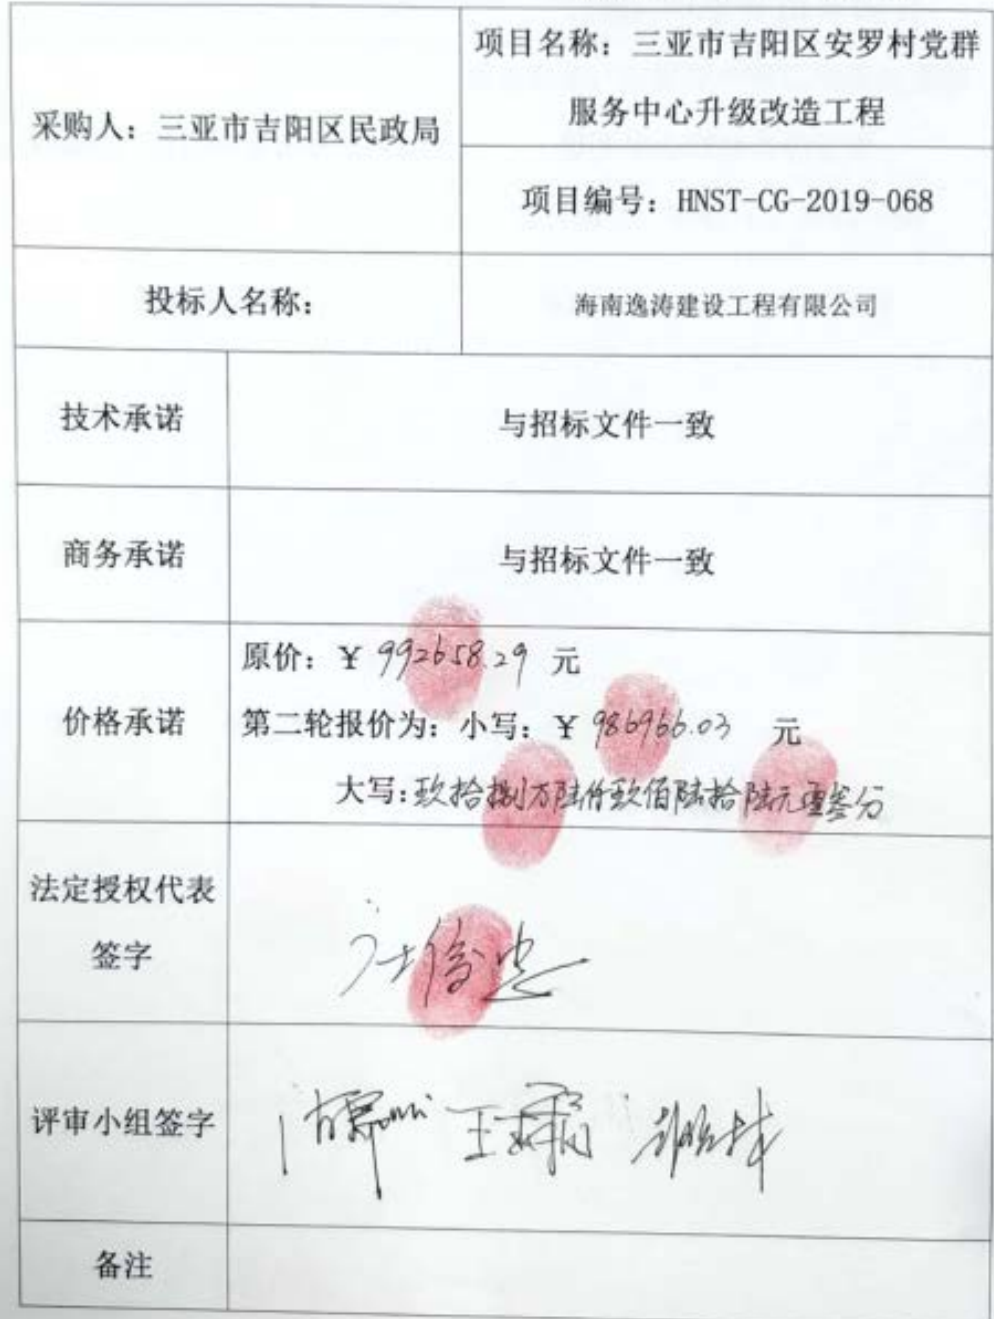 采购人：三亚市吉阳区民政局
项目名称：三亚市吉阳区安罗村党群
服务中心升级改造工程
项目编号：HNST-CG-2019-068
投标人名称：
海南逸涛建设工程有限公司
技术承诺
与招标文件一致
商务承诺
与招标文件一致
价格承诺
原价：¥ 992658.29 元
第二轮报价为：小写：¥ 986966.03 元
大写：玖拾捌万陆仟玖佰陆拾陆元零叁分
法定授权代表
签字
评审小组签字
备注